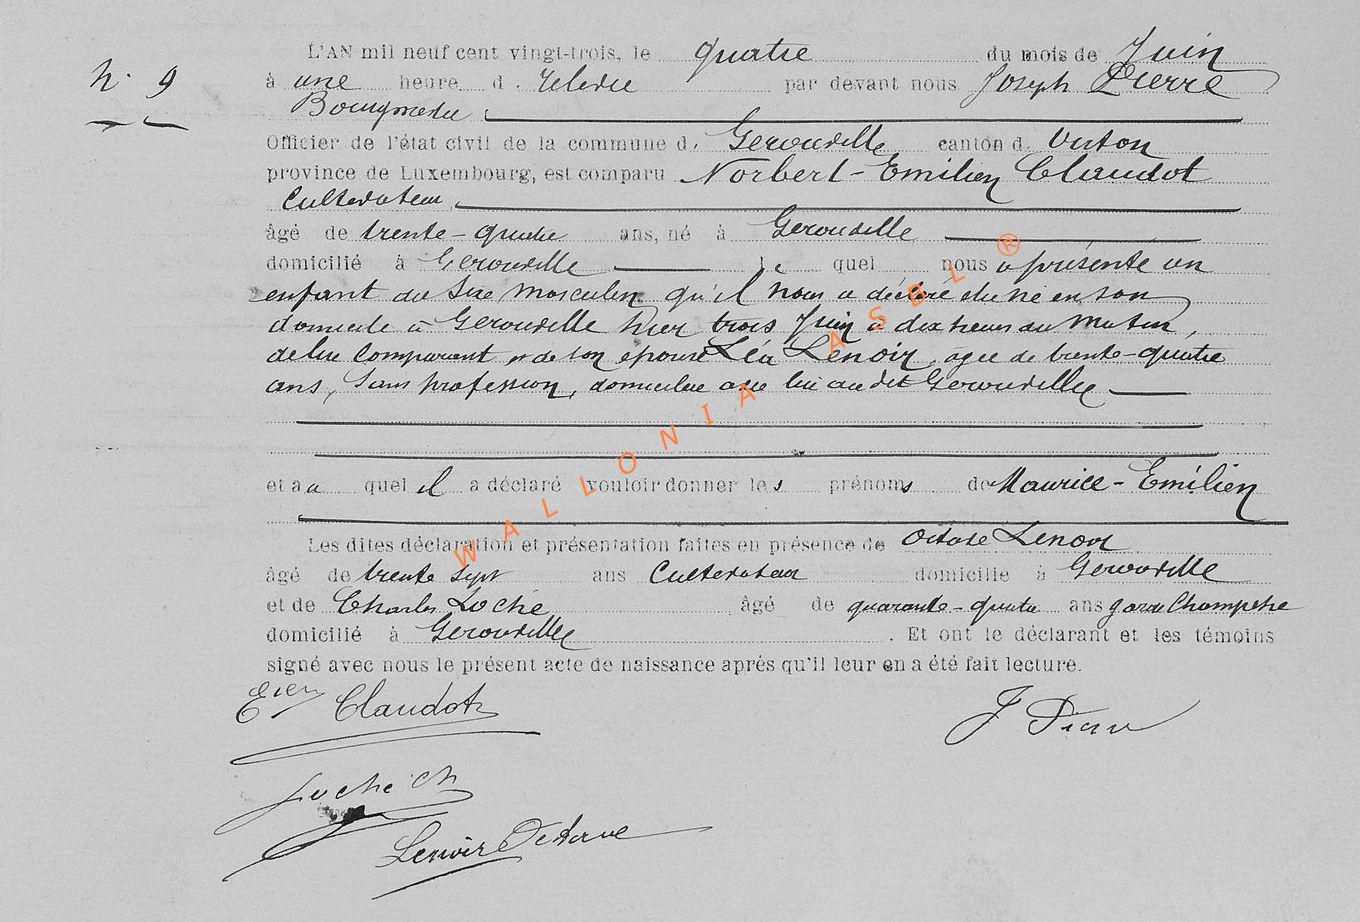 L'AN mil neuf cent vingt-trois, le quatre du mois de Juin
N. 9
à une heure d. relevée par devant nous Joseph Pierre
Bourgmestre
Officier de l'état civil de la commune d. Gerouville canton d. Virton
province de Luxembourg, est comparu Norbert-Emilien Claudot
Cultivateur
âgé de trente-quatre ans, né à Gerouville
domicilié à Gerouville le quel nous a présenté un
enfant du Sexe masculin qu'il nous a déclaré être né en son
domicile à Gerouville hier trois Juin à dix heures du matin,
de lui comparant et de son épouse Léa Lenoir, agée de trente-quatre
ans, Sans profession, domiciliée avec lui au dit Gerouville
et au quel il a déclaré vouloir donner les prénoms de Maurice-Emilien
Les dites déclaration et présentation faites en présence de Octave Lenoir
âgé de trente sept ans Cultivateur domicilié à Gerouville
et de Charles Loché âgé de quarante-quatre ans garde Champetre
domicilié à Gerouville . Et ont le déclarant et les témoins
signé avec nous le présent acte de naissance après qu'il leur en a été fait lecture.
Eien Claudot
J Pierre
Loché Ch
Lenoir Octave
WALLONIA ASBL ®